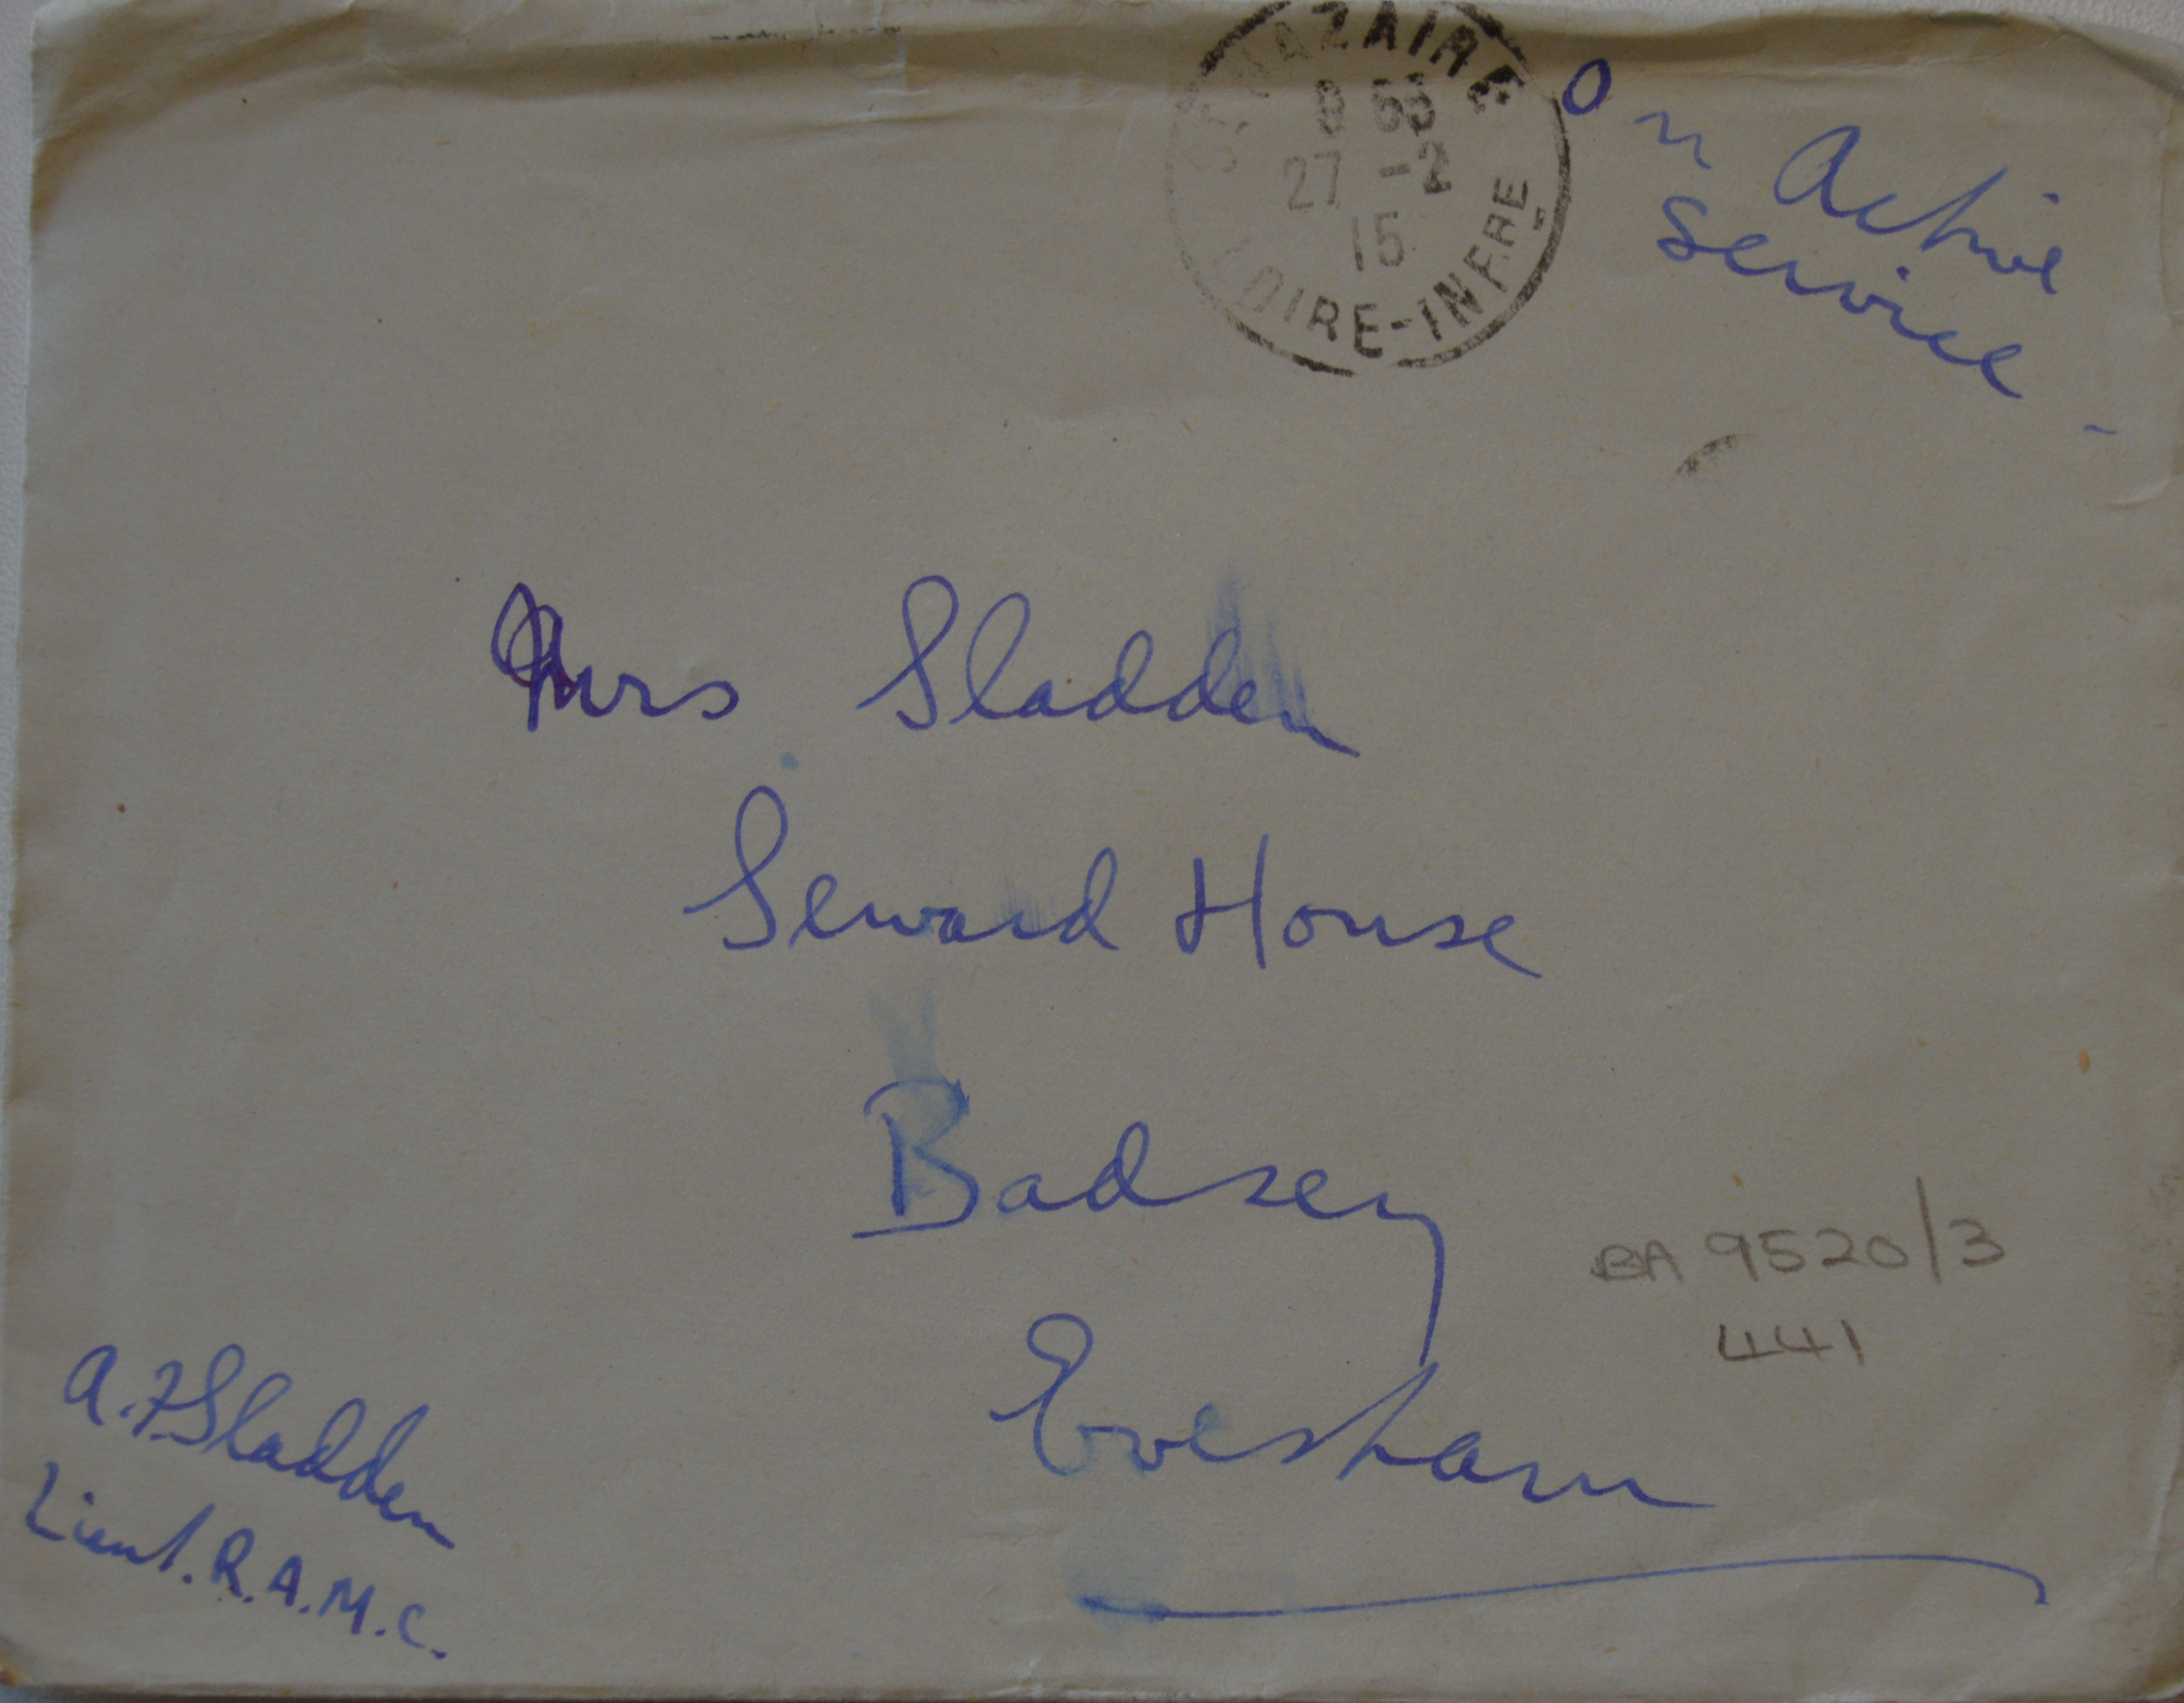 ST NAZAIRE
8 55
27 -2
15
LOIRE-INFRE
On Active
Service -
Mrs Sladden
Seward House
Badsey
Evesham
BA 9520/3
441
A.F. Sladden
Lieut. R.A.M.C.